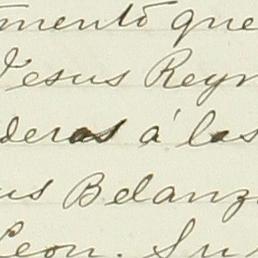 mentó que
Jesus Reyn
deras á las
us Belanz
Leon. Su